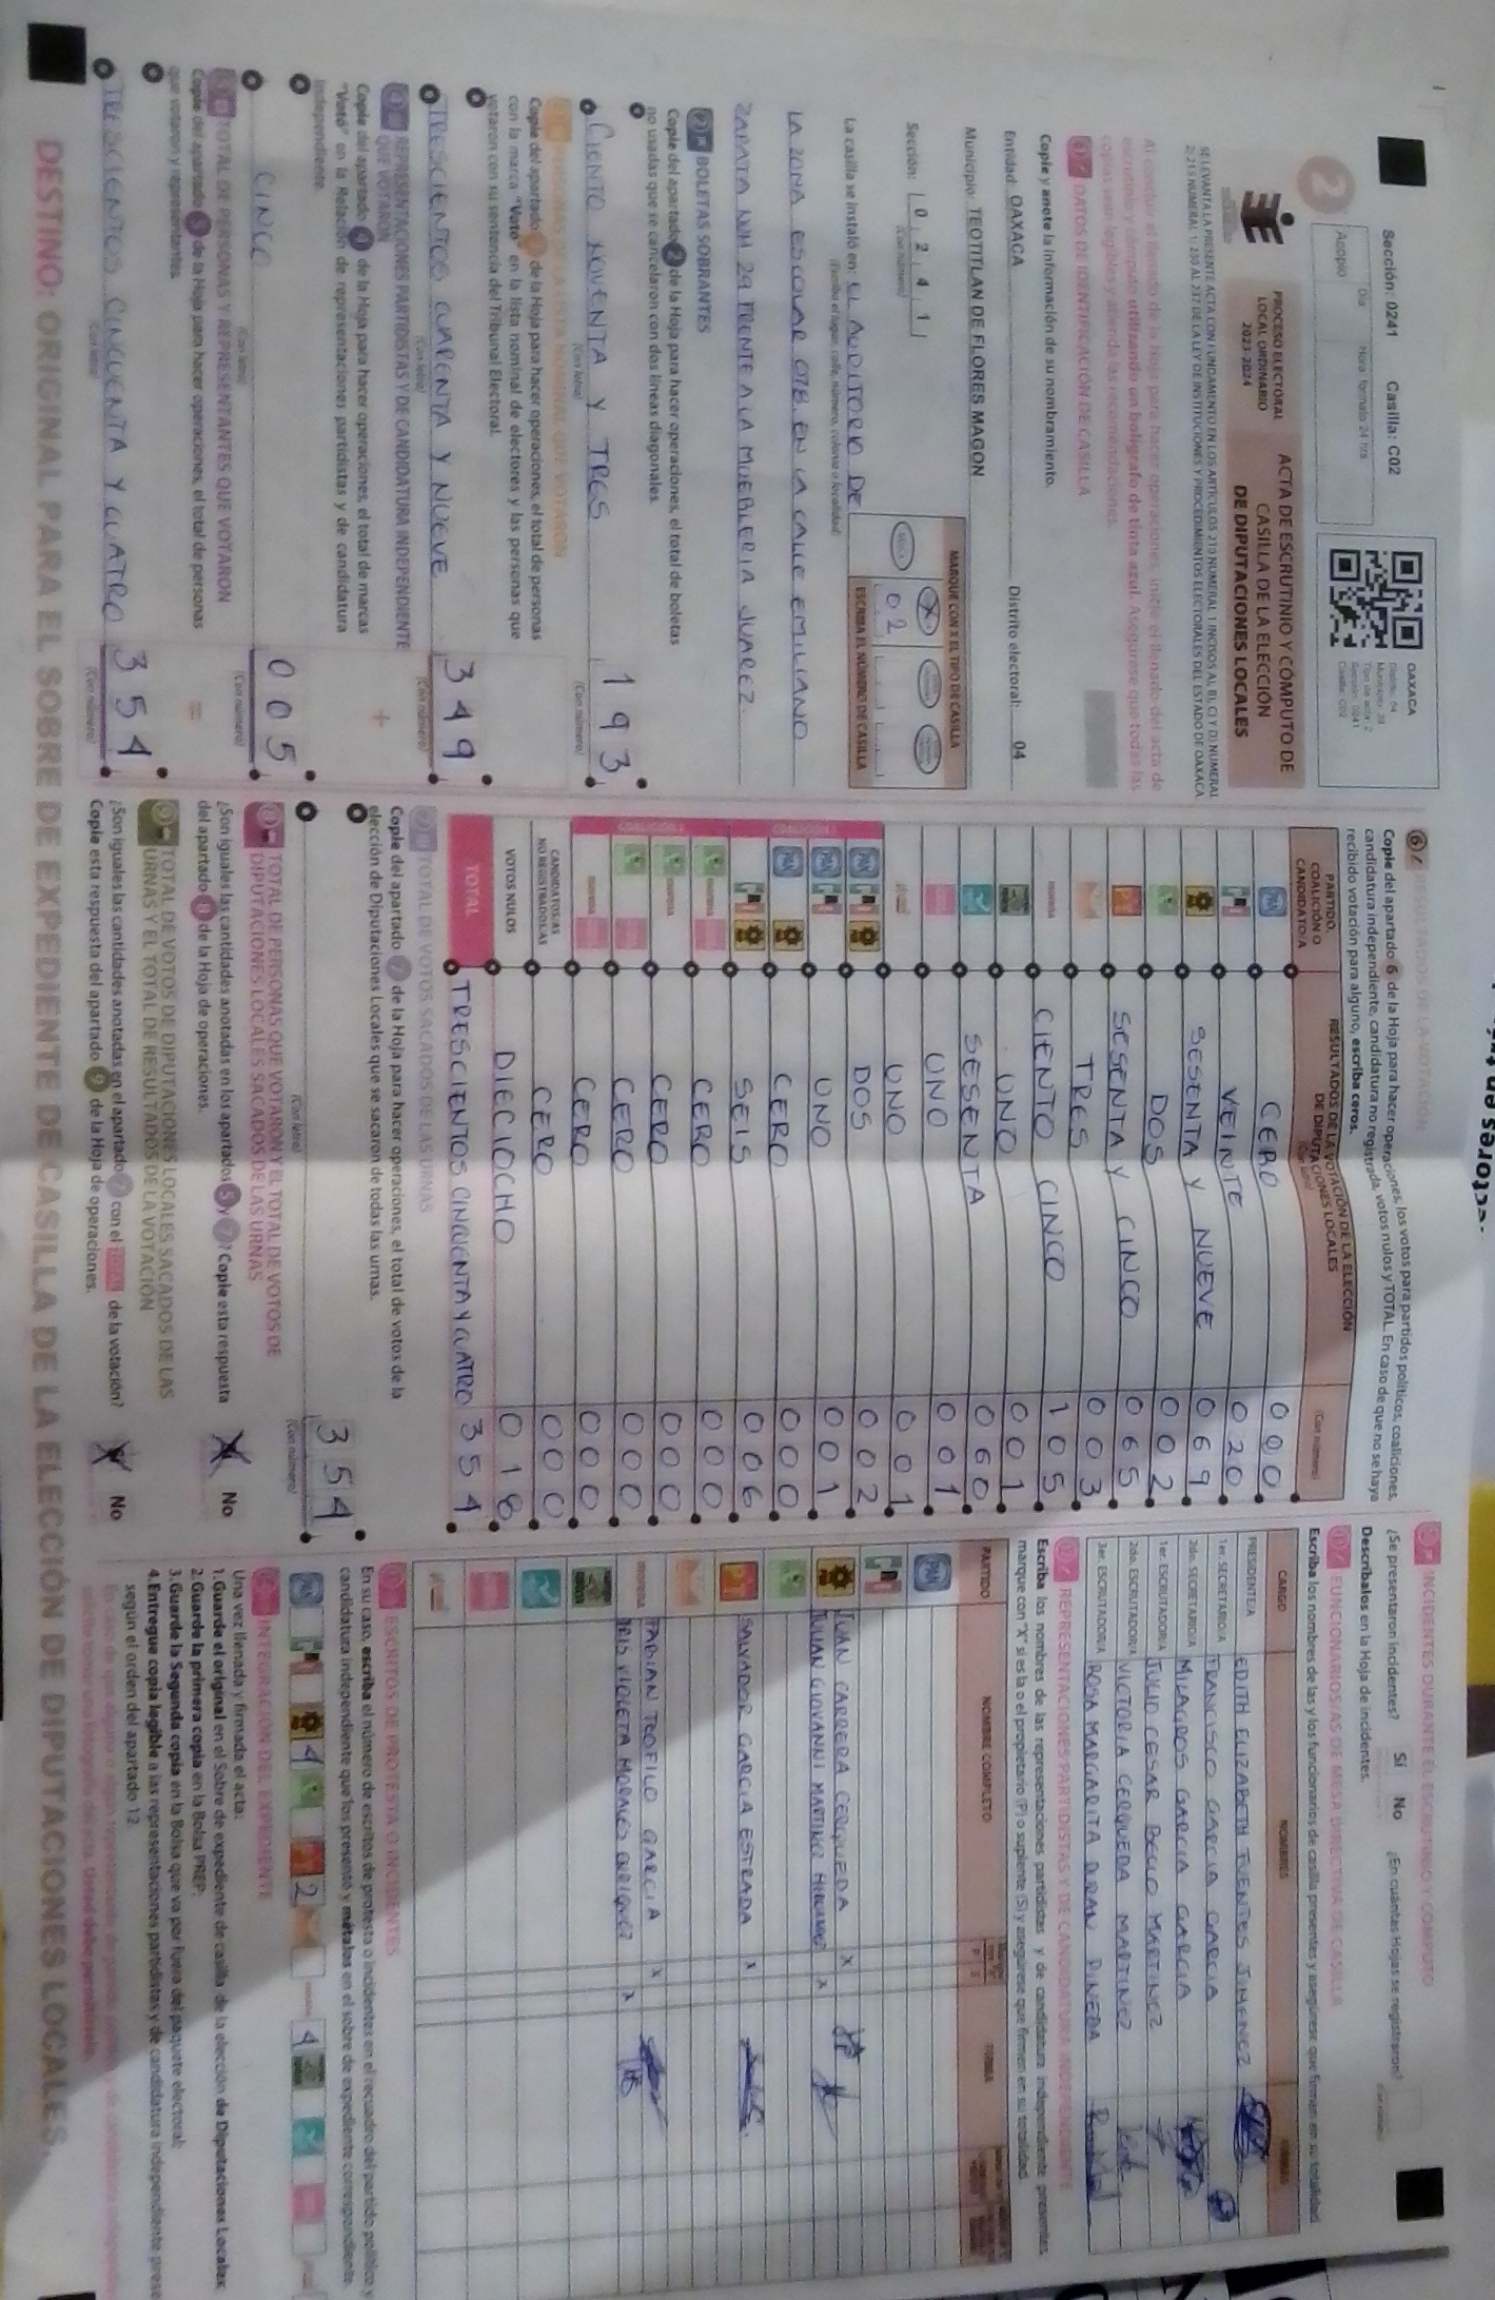 Sección: 0241 Casilla: C02
Acopio
OAXACA
2
PROCESO ELECTORAL
LOCAL ORDINARIO
2023-2024
ACTA DE ESCRUTINIO Y CÓMPUTO DE
CASILLA DE LA ELECCIÓN
DE DIPUTACIONES LOCALES
DATOS DE IDENTIFICACIÓN DE CASILLA
Copie y anote la información de su nombramiento.
Entidad: OAXACA Distrito electoral: 04
Municipio: TEOTITLAN DE FLORES MAGON
Sección: 0241
MARQUE CON X EL TIPO DE CASILLA
X
02
ESCRIBA EL NÚMERO DE CASILLA
La casilla se instaló en: EL AUDITORIO DE
(Escriba el lugar, calle, número, colonia o localidad)
LA ZONA ESCOLAR 078. EN LA CALLE EMILIANO
ZAPATA NUM 29 FRENTE A LA MUEBLERIA JUAREZ
2 BOLETAS SOBRANTES
Copie del apartado 2 de la Hoja para hacer operaciones, el total de boletas
no usadas que se cancelaron con dos líneas diagonales.
CIENTO NOVENTA Y TRES 193
Copie del apartado de la Hoja para hacer operaciones, el total de personas
con la marca "Votó" en la lista nominal de electores y las personas que
votaron con su sentencia del Tribunal Electoral.
TRESCIENTOS CUARENTA Y NUEVE 349
REPRESENTACIONES PARTIDISTAS Y DE CANDIDATURA INDEPENDIENTE
QUE VOTARON
Copie del apartado 4 de la Hoja para hacer operaciones, el total de marcas
"Votó" en la Relación de representaciones partidistas y de candidatura
independiente.
CINCO 005
TOTAL DE PERSONAS Y REPRESENTANTES QUE VOTARON
Copie del apartado 5 de la Hoja para hacer operaciones, el total de personas
que votaron y representantes.
TRESCIENTOS CINCUENTA Y CUATRO 354
6 RESULTADOS DE LA VOTACIÓN
Copie del apartado 6 de la Hoja para hacer operaciones, los votos para partidos políticos, coaliciones,
candidatura independiente, candidatura no registrada, votos nulos y TOTAL. En caso de que no se haya
recibido votación para alguno, escriba ceros.
PARTIDO,
COALICIÓN O
CANDIDATO/A
RESULTADOS DE LA VOTACIÓN DE LA ELECCIÓN
DE DIPUTACIONES LOCALES
PAN CERO 000
PRI VEINTE 020
PRD SESENTA Y NUEVE 069
DOS 002
PT SESENTA Y CINCO 065
TRES 003
morena CIENTO CINCO 105
UNO 001
SESENTA 060
UNO 001
UNO 001
DOS 002
UNO 001
CERO 000
SEIS 006
CERO 000
CERO 000
CERO 000
CERO 000
CANDIDATOS/AS
NO REGISTRADOS/AS CERO 000
VOTOS NULOS DIECIOCHO 018
TOTAL TRESCIENTOS CINCUENTA Y CUATRO 354
TOTAL DE VOTOS SACADOS DE LAS URNAS
Copie del apartado 7 de la Hoja para hacer operaciones, el total de votos de la
elección de Diputaciones Locales que se sacaron de todas las urnas.
354
TOTAL DE PERSONAS QUE VOTARON Y EL TOTAL DE VOTOS DE
DIPUTACIONES LOCALES SACADOS DE LAS URNAS
¿Son iguales las cantidades anotadas en los apartados 5 y 7? Copie esta respuesta
del apartado 8 de la Hoja de operaciones.
No
TOTAL DE VOTOS DE DIPUTACIONES LOCALES SACADOS DE LAS
URNAS Y EL TOTAL DE RESULTADOS DE LA VOTACIÓN
¿Son iguales las cantidades anotadas en el apartado 7 con el TOTAL de la votación?
Copie esta respuesta del apartado 9 de la Hoja de operaciones.
No
INCIDENTES DURANTE EL ESCRUTINIO Y CÓMPUTO
¿Se presentaron incidentes? Sí No ¿En cuántas Hojas se registraron?
Descríbalos en la Hoja de incidentes.
FUNCIONARIOS/AS DE MESA DIRECTIVA DE CASILLA
Escriba los nombres de las y los funcionarios de casilla presentes y asegúrese que firmen en su totalidad.
CARGO NOMBRES
PRESIDENTE/A EDITH ELIZABETH FUENTES JIMENEZ
1er. SECRETARIO/A FRANCISCO GARCIA GARCIA
2do. SECRETARIO/A MILAGROS GARCIA GARCIA
1er. ESCRUTADOR/A JULIO CESAR MARTINEZ
2do. ESCRUTADOR/A VICTORIA CERQUEDA MARTINEZ
3er. ESCRUTADOR/A ROSA MARGARITA DURAN PINEDA
REPRESENTACIONES PARTIDISTAS Y DE CANDIDATURA INDEPENDIENTE
Escriba los nombres de las representaciones partidistas y de candidatura independiente presentes,
marque con "X" si es la o el propietario (P) o suplente (S) y asegúrese que firmen en su totalidad.
PARTIDO NOMBRE COMPLETO FIRMA
JUAN CARRERA CERQUEDA X
JUAN GIOVANNI MARTINEZ X
SALVADOR GARCIA ESTRADA X
FABIAN TEOFILO GARCIA X
IRIS VIOLETA MORALES X
ESCRITOS DE PROTESTA O INCIDENTES
En su caso, escriba el número de escritos de protesta o incidentes en el recuadro del partido político y
candidatura independiente que los presentó y métalos en el sobre de expediente correspondiente.
4 2 4
INTEGRACIÓN DEL EXPEDIENTE
Una vez llenada y firmada el acta:
1. Guarde el original en el Sobre de expediente de casilla de la elección de Diputaciones Locales.
2. Guarde la primera copia en la Bolsa PREP.
3. Guarde la Segunda copia en la Bolsa que va por fuera del paquete electoral.
4. Entregue copia legible a las representaciones partidistas y de candidatura independiente
según el orden del apartado 12.
DESTINO: ORIGINAL PARA EL SOBRE DE EXPEDIENTE DE CASILLA DE LA ELECCIÓN DE DIPUTACIONES LOCALES.